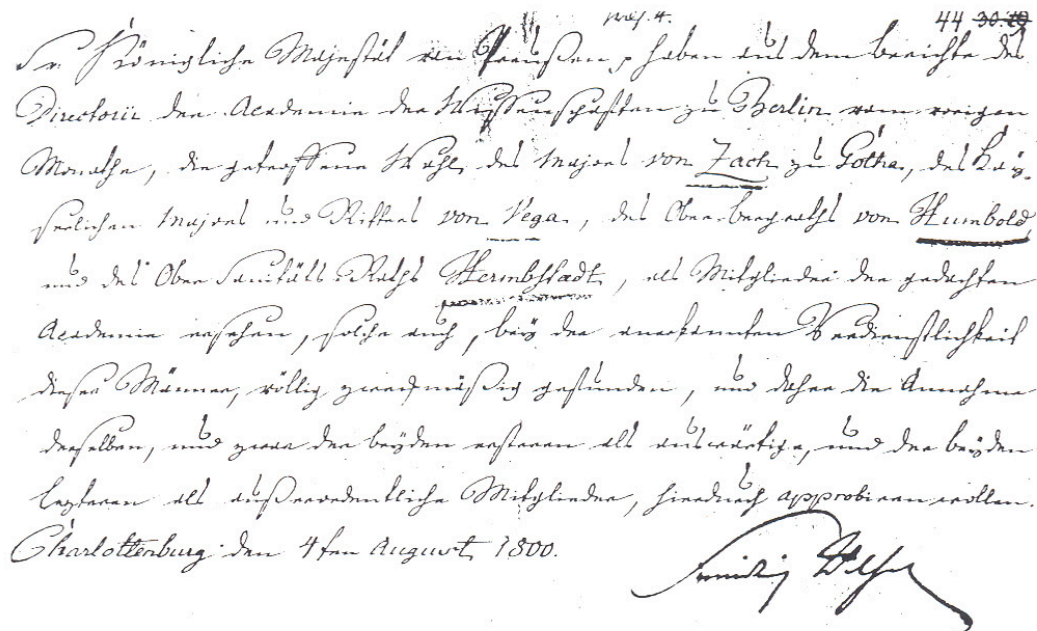 44 30.
Sr. Königliche Majestät von Preußen p haben aus dem berichte des
Directorii der Academie der Wissenschaften zu Berlin vom vorigen
Monathe, die getroffene Wahl, des Majors von Zach zu Gotha, des Kay-
serlichen Majors und Ritters von Vega, des Ober-bergraths von Humbold,
und des Ober Sanitäts Raths Hermbstädt, als Mitglieder der gedachten
Academie ersehen, solche auch, bey der anerkannten Verdienstlichkeit
dieser Männer, völlig zweckmäßig gefunden, und daher die Annahme
derselben, und zwar der beyden ersteren als auswärtige, und der beyden
lezteren als außerordentliche Mitglieder, hierdurch approbiren wollen.
Charlottenburg den 4ten August 1800.
Friedrich Wilhelm